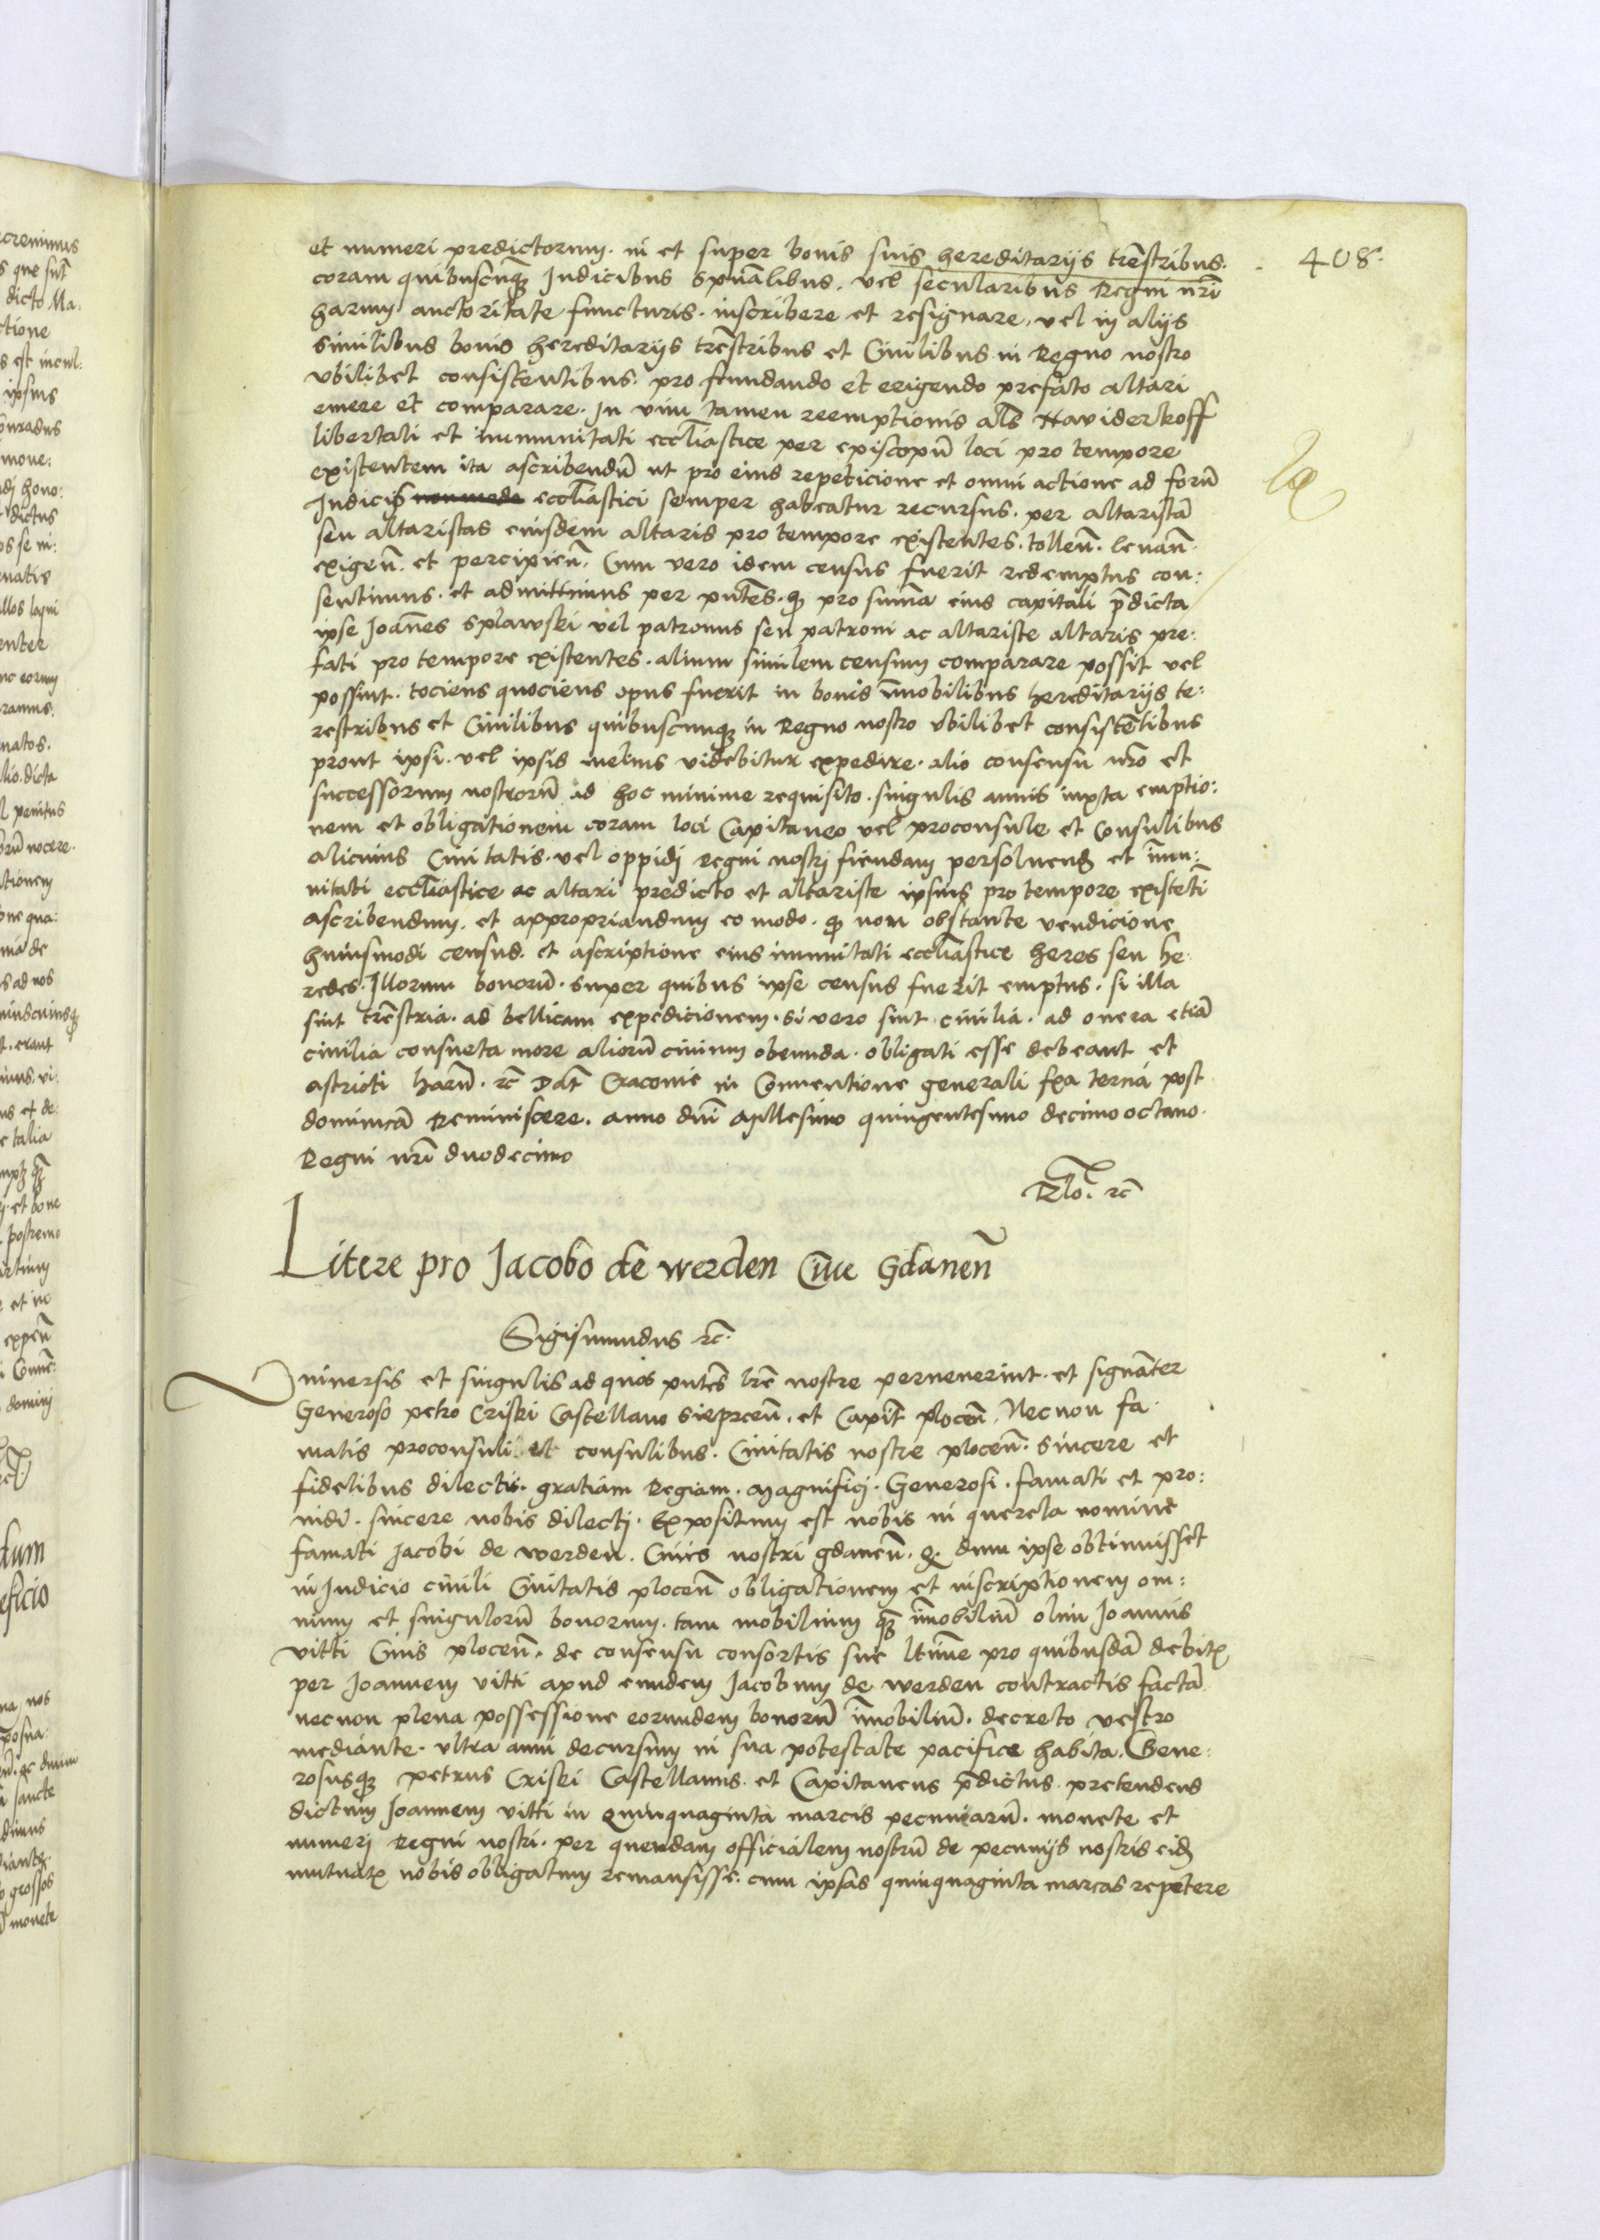 408.
et numeri predictorum. in et super bonis suis hereditarijs trēstribus.
coram quibuscūqȝ Iudicibus spūalibus. vel secularibus Regni nr̄i
harum auctoritate functuris. inscribere et resignare, vel in alijs
similibus bonis hereditarijs trēstribus et Ciuilibus in Regno nostro
vbilibet consistentibus. pro fundando et erigendo prefato altari
emere et comparare. In vim tamen reemptionis als̄ Naviderkoff
libertati et immunitati eccl̄iastice per episcopū loci pro tempore
existentem ita ascribendū ut pro eius repeticione et omni actione ad forū
Iudicis eccl̄iastici semper habeatur recursus. per altaristā
seu altaristas eiusdem altaris pro tempore existentes. tollen̄. leuan̄.
exigen̄. et percipien̄. Cum vero idem census fuerit redemptus con:
sentimus. et admittimus per pn̄tes. qȝ pro summa eius capitali p̄dicta
ipse Joān̄es Splawski vel patronus seu patroni ac altariste altaris pre:
fati pro tempore existentes. alium similem censum comparare possit vel
possint. tociens quociens opus fuerit in bonis īmobilibus hereditarijs te:
restribus et Ciuilibus quibuscunqȝ in Regno nostro vbilibet consistētibus
prout ipsi. vel ipsis melius videbitur expedire. alio consensu nr̄o et
successorum nostrorū ad hoc minime requisito. singulis annis iuxta emptio:
nem et obligationem coram loci Capitaneo vel proconsule et Consulibus
alicuius Ciuitatis. vel oppidj Regni nostrj fiendam persoluend̄ et īmu:
nitati eccl̄iastice ac altari predicto et altariste ipsius pro tempore existēti
ascribendum. et appropriandum eo modo. qȝ non obstante vendicione
huiusmodi census. et ascriptione eius immunitati eccl̄iastice heres seu he
redes. Illorum bonorū. super quibus ipse census fuerit emptus. si illa
sint trēstria. ad bellicam expedicionem. si vero sint ciuilia. ad onera etiā
ciuilia consueta more aliorū ciuium obeunda. obligati esse debeant et
astricti harū. rc̄ Dat̄ Cracouie in Conuentione generali fr̄ia tercia post
dominicā Reminiscere. anno dn̄i Millesimo quingentesimo decimo octauo.
Regni nr̄i duodecimo
Rlo. rc̄
Litere pro Jacobo de werden Ciue Gdanen̄
Sigismundus rc̄.
Vniuersis et singulis ad quos pn̄tes lr̄e nostre peruenerint. et signāter
Generoso petro Criski Castellano Sieprcen̄. et Capit̄ plocen̄. Necnon fa
matis proconsuli et consulibus. Ciuitatis nostre plocen̄. sincere et
fidelibus dilectis. gratiam Regiam. Magnificj. Generosi. famati et pro:
uidi. sincere nobis dilectj. Expositum est nobis in querela nomine
famati Jacobi de werden. Ciuis nostri gdanen̄. qȝ. dum ipse obtinuisset
in Iudicio ciuili Ciuitatis plocen̄ obligationem et inscriptionem om:
nium et singulorū bonorum. tam mobilium qȝ īmobiliū olim Joannis
vitti Ciuis plocen̄. de consensu consortis sue ltīme pro quibusdā debitȝ
per Joannem vitti apud eundem Jacobum de werden contractis factā
necnon plena possessione eorundem bonorū īmobiliū. decreto vestro
mediante. vltra anni decursum in sua potestate pacifice habita. Gene:
rosusqȝ petrus Criski Castellanus. et Capitaneus p̄dictus pretendens
dictum Joannem vitti in quinquaginta marcis pecuniarū. monete et
numerj Regni nostri. per quendam officialem nostrū de pecunijs nostris eid̄
mutuatȝ nobis obligatum remansisse. cum ipsas quinquaginta marcas repetere